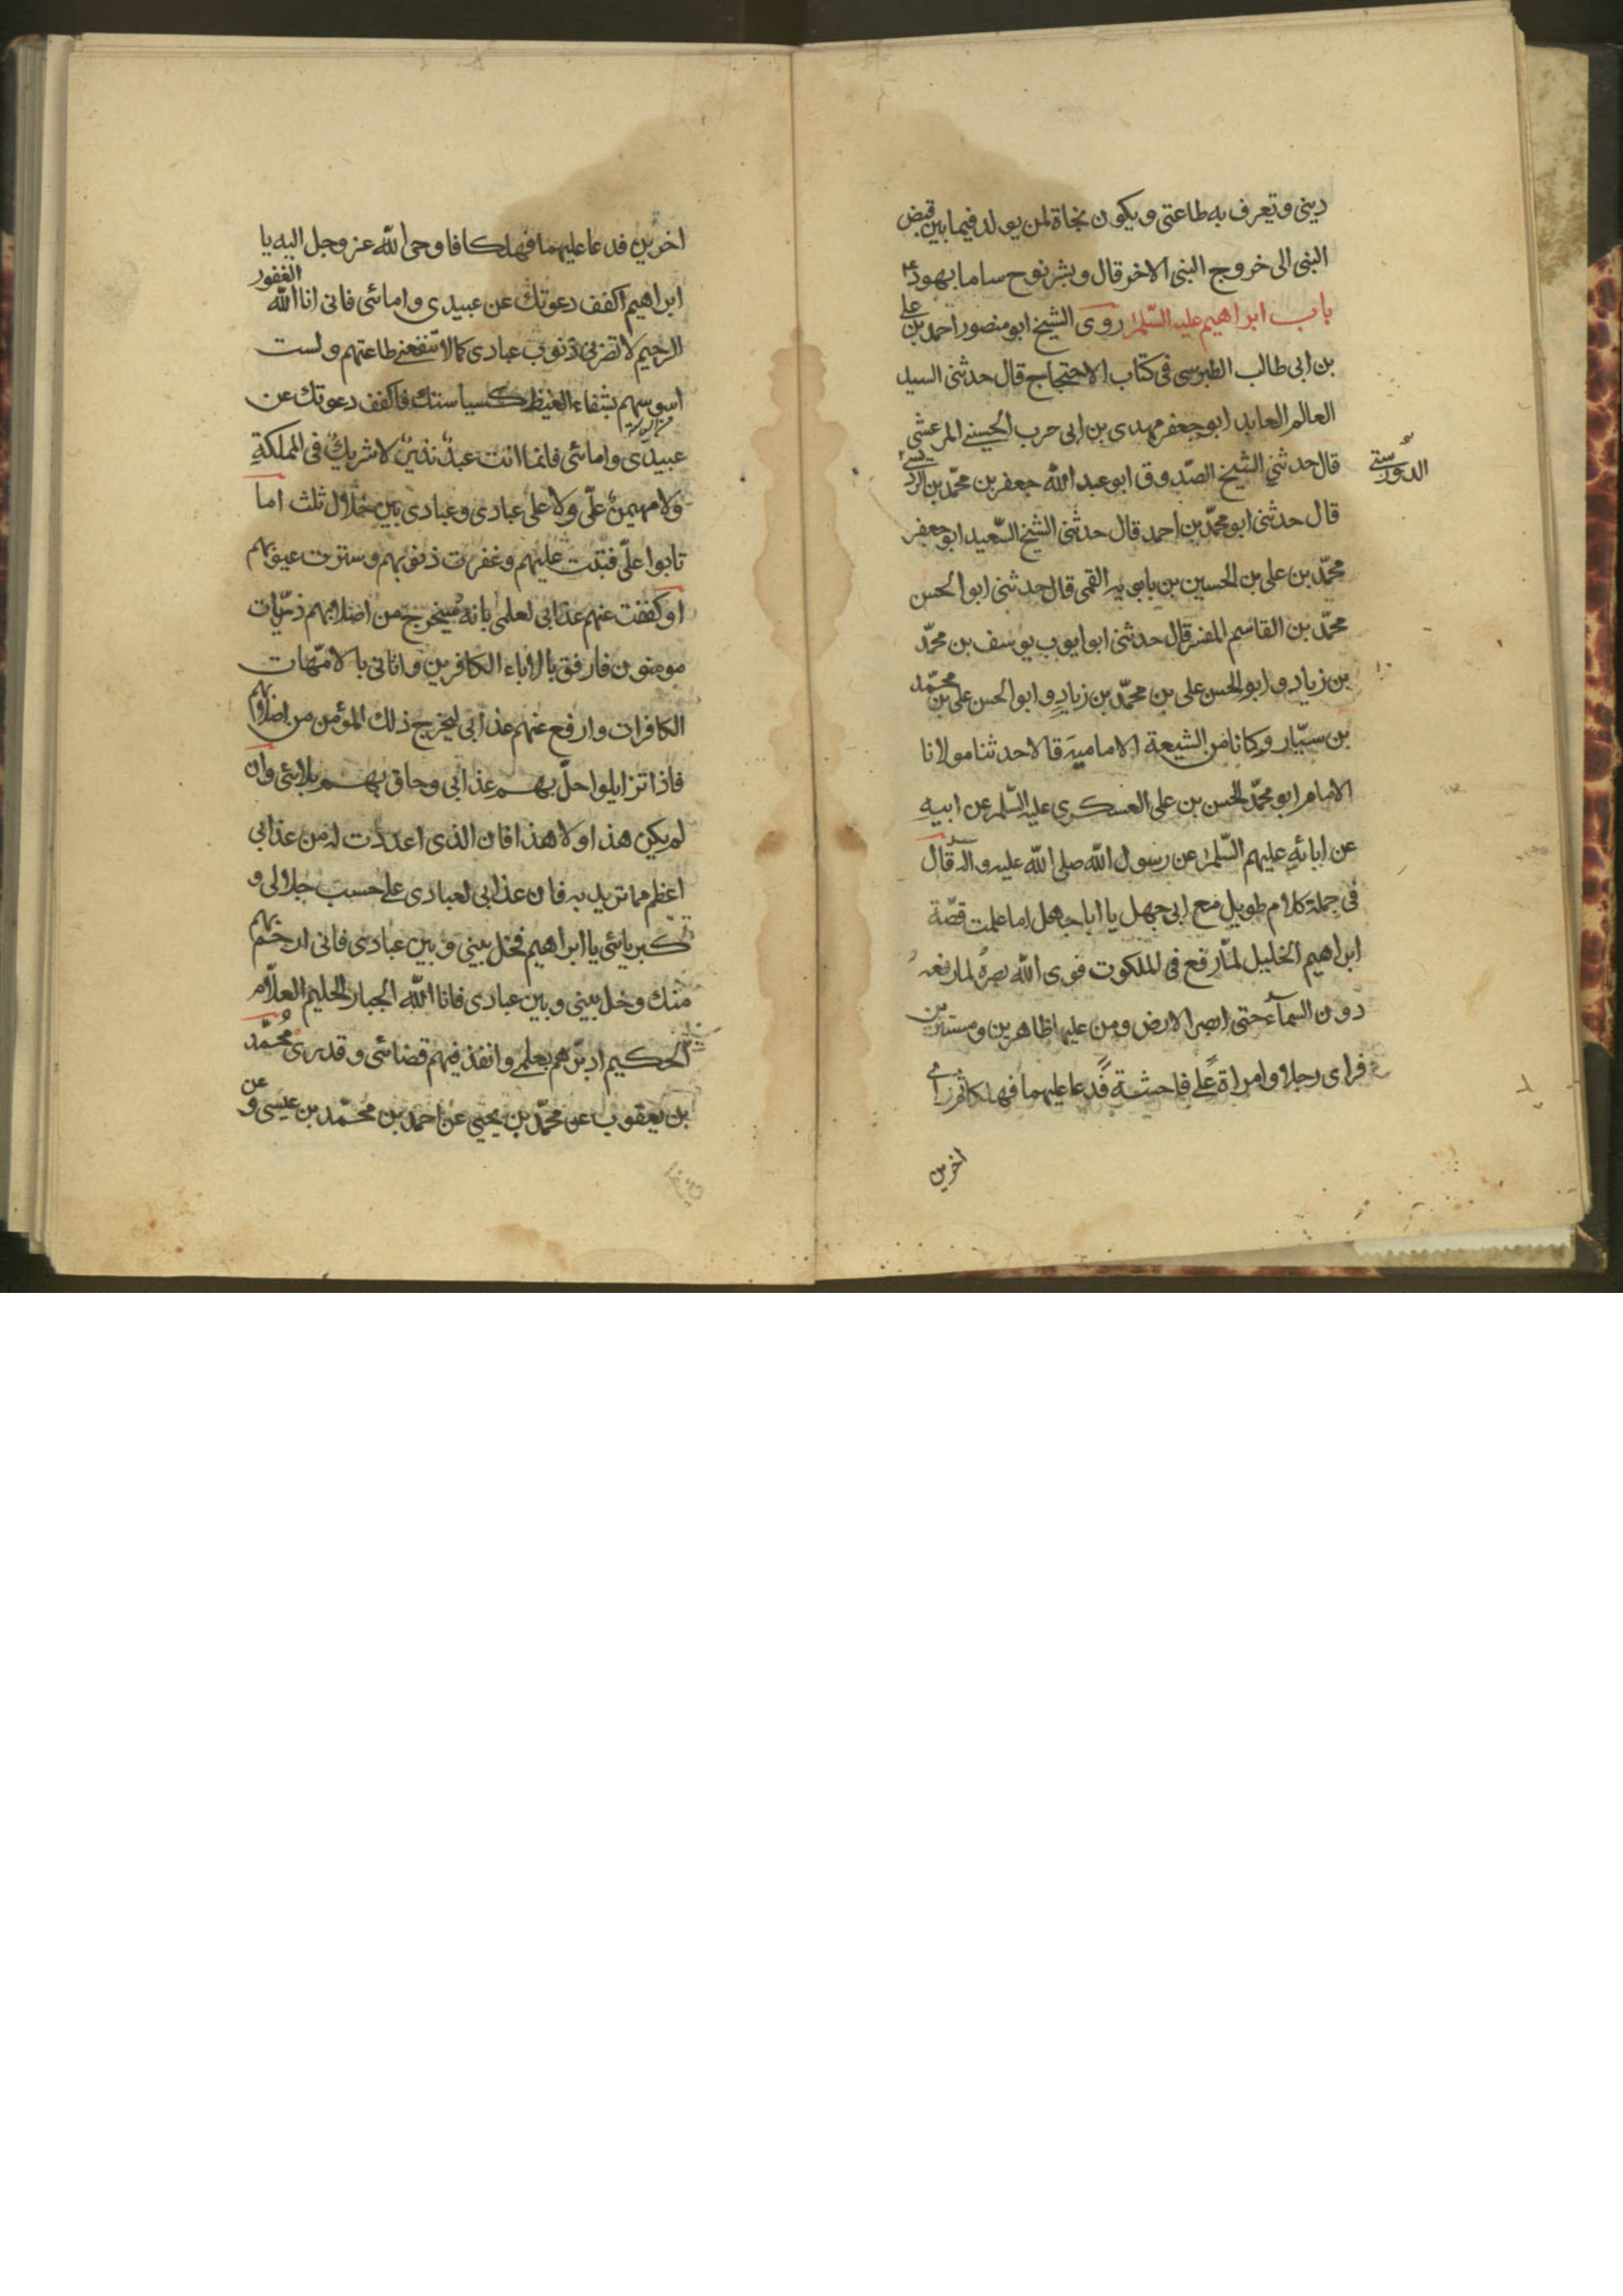 ديني وتعرف به طاعتي ويكون نجاة لمن يولد فيما بين قبض
النبي الى خروج النبي الاخر قال وبشر نوح ساما بهود ع
باب ابراهيم عليه السّلم روى الشيخ ابو منصور احمد بن علي
بن ابي طالب الطبرسي في كتاب الاحتجاج قال حدثني السيد
العالم العابد ابو جعفر مهدي بن ابي حرب الحسيني المرعشي
قال حدثني الشيخ الصّدوق ابو عبد الله جعفر بن محمّد بن
الدورستي
قال حدثني ابو محمّد بن احمد قال حدثني الشيخ السّعيد ابو جعفر
محمّد بن علي بن الحسين بن بابويه القمي قال حدثني ابو الحسن
محمّد بن القاسم المفسر قال حدثني ابو ايوب يوسف بن محمّد
بن زياد و ابو الحسن علي بن محمّد بن زياد و ابو الحسن علي بن محمّد
بن سيّار وكانا من الشيعة الامامية قالا حدثنا مولانا
الامام ابو محمّد الحسن بن علي العسكري عليه السّلم عن ابيه
عن ابائه عليهم السّلم عن رسول الله صلى الله عليه واله قال
في جملة كلام طويل مع ابي جهل يا ابا جهل اما علمت قصّة
ابراهيم الخليل لمّا رفع في الملكوت قوى الله بصره لما رفعه
دون السمآء حتى ابصر الارض ومن عليها ظاهرين ومستترين
فراى رجلا وامراة على فاحشة فدعا عليهما فهلكا ثم راى
اخرين
اخرين فدعا عليهما فهلكا فاوحى الله عز وجل اليه يا
ابراهيم اكفف دعوتك عن عبيدي وامائي فاني انا الله الغفور
الرحيم لا تضرني ذنوب عبادي كما لا تنفعني طاعتهم ولست
اسوسهم بشفاء الغيظ كسياستك فاكفف دعوتك عن
عبيدي وامائي فانما انت عبدٌ نذيرٌ لا شريكٌ في المملكةِ
ولا مهيمنٌ علّي ولا على عبادي وعبادي بين خلال ثلث اما
تابوا علّي فتبت عليهم وغفرت ذنوبهم وسترت عيوبهم
او كففت عنهم عذابي لعلمي بانه سيخرج من اصلابهم ذرّيات
مومنون فارفق بالاباء الكافرين واتاني بالامّهات
الكافرات وارفع عنهم عذابي ليخرج ذلك المؤمن من اصلابهم
فاذا تزايلوا حلّ بهم عذابي وحاق بهم بلائي وان
لم يكن هذا ولا هذا فان الذي اعددت له من عذابي
اعظم مما تريد به فان عذابي لعبادي على حسب جلالي و
كبريائي يا ابراهيم فخل بيني وبين عبادي فاني ارحم بهم
منك وخل بيني وبين عبادي فانا الله الجبار الحليم العلّام
الحكيم ادبّرهم بعلمي وانفذ فيهم قضائي وقدري محمّد
بن يعقوب عن محمّد بن يحيى عن احمد بن محمّد بن عيسى وعن